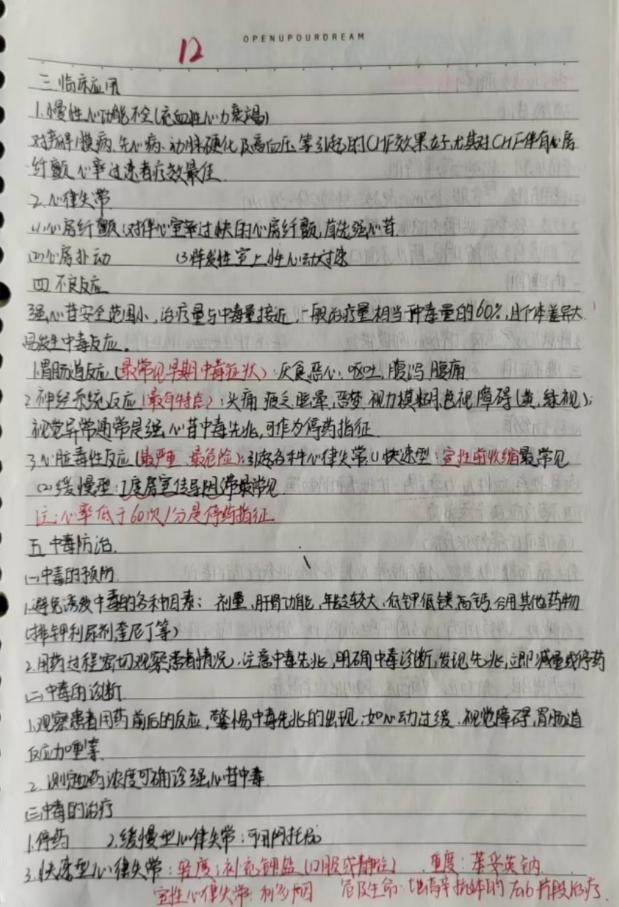 12
OPENUPOURDREAM
三.临床应用
1.慢性心功能不全(充血性心力衰竭)
对瓣膜病、先心病、动脉硬化及高血压等引起的CHF效果好,尤其对CHF伴有心房
纤颤、心率过患者疗效最佳
2.心律失常
(1)心房纤颤(对伴心室率过快的心房纤颤,首先强心苷
(2)心房扑动 (3)阵发性室上性心动过速
四.不良反应
强心苷安全范围小,治疗量与中毒量接近,一般治疗量相当于中毒量的60%,且个体差异大
易发生中毒反应。
1.胃肠道反应(最常见早期中毒症状):厌食恶心、呕吐、腹泻腹痛
2.神经系统反应(最有特点):头痛疲乏眩晕,恶梦、视力模糊,色视障碍(黄,绿视);
视觉异常通常是强心苷中毒先兆,可作为停药指征
3.心脏毒性反应(最严重、最危险):引起各种心律失常(1)快速型:室性前收缩最常见
(2)缓慢型:房室传导阻滞最常见
注:心率低于60次/分是停药指征
五.中毒防治.
(一)中毒的预防
1.避免诱发中毒的各种因素:剂量,肝肾功能,年龄较大、低钾低镁高钙、合用其他药物
(排钾利尿剂奎尼丁等)
2.用药过程密切观察患者情况,注意中毒先兆,明确中毒诊断,发现先兆,立即减量或停药
(二)中毒的诊断
1.观察患者用药前后的反应,警惕中毒先兆的出现,如心动过缓、视觉障碍,胃肠道
反应加重等
2.测定血药浓度可确诊强心苷中毒
(三)中毒的治疗
1.停药 2.缓慢型心律失常:可用阿托品
3.快速型心律失常:轻度:补充钾盐(口服或静脉) 重度:苯妥英钠
室性心律失常:利多卡因 危及生命:地高辛抗体的Fab片段治疗.